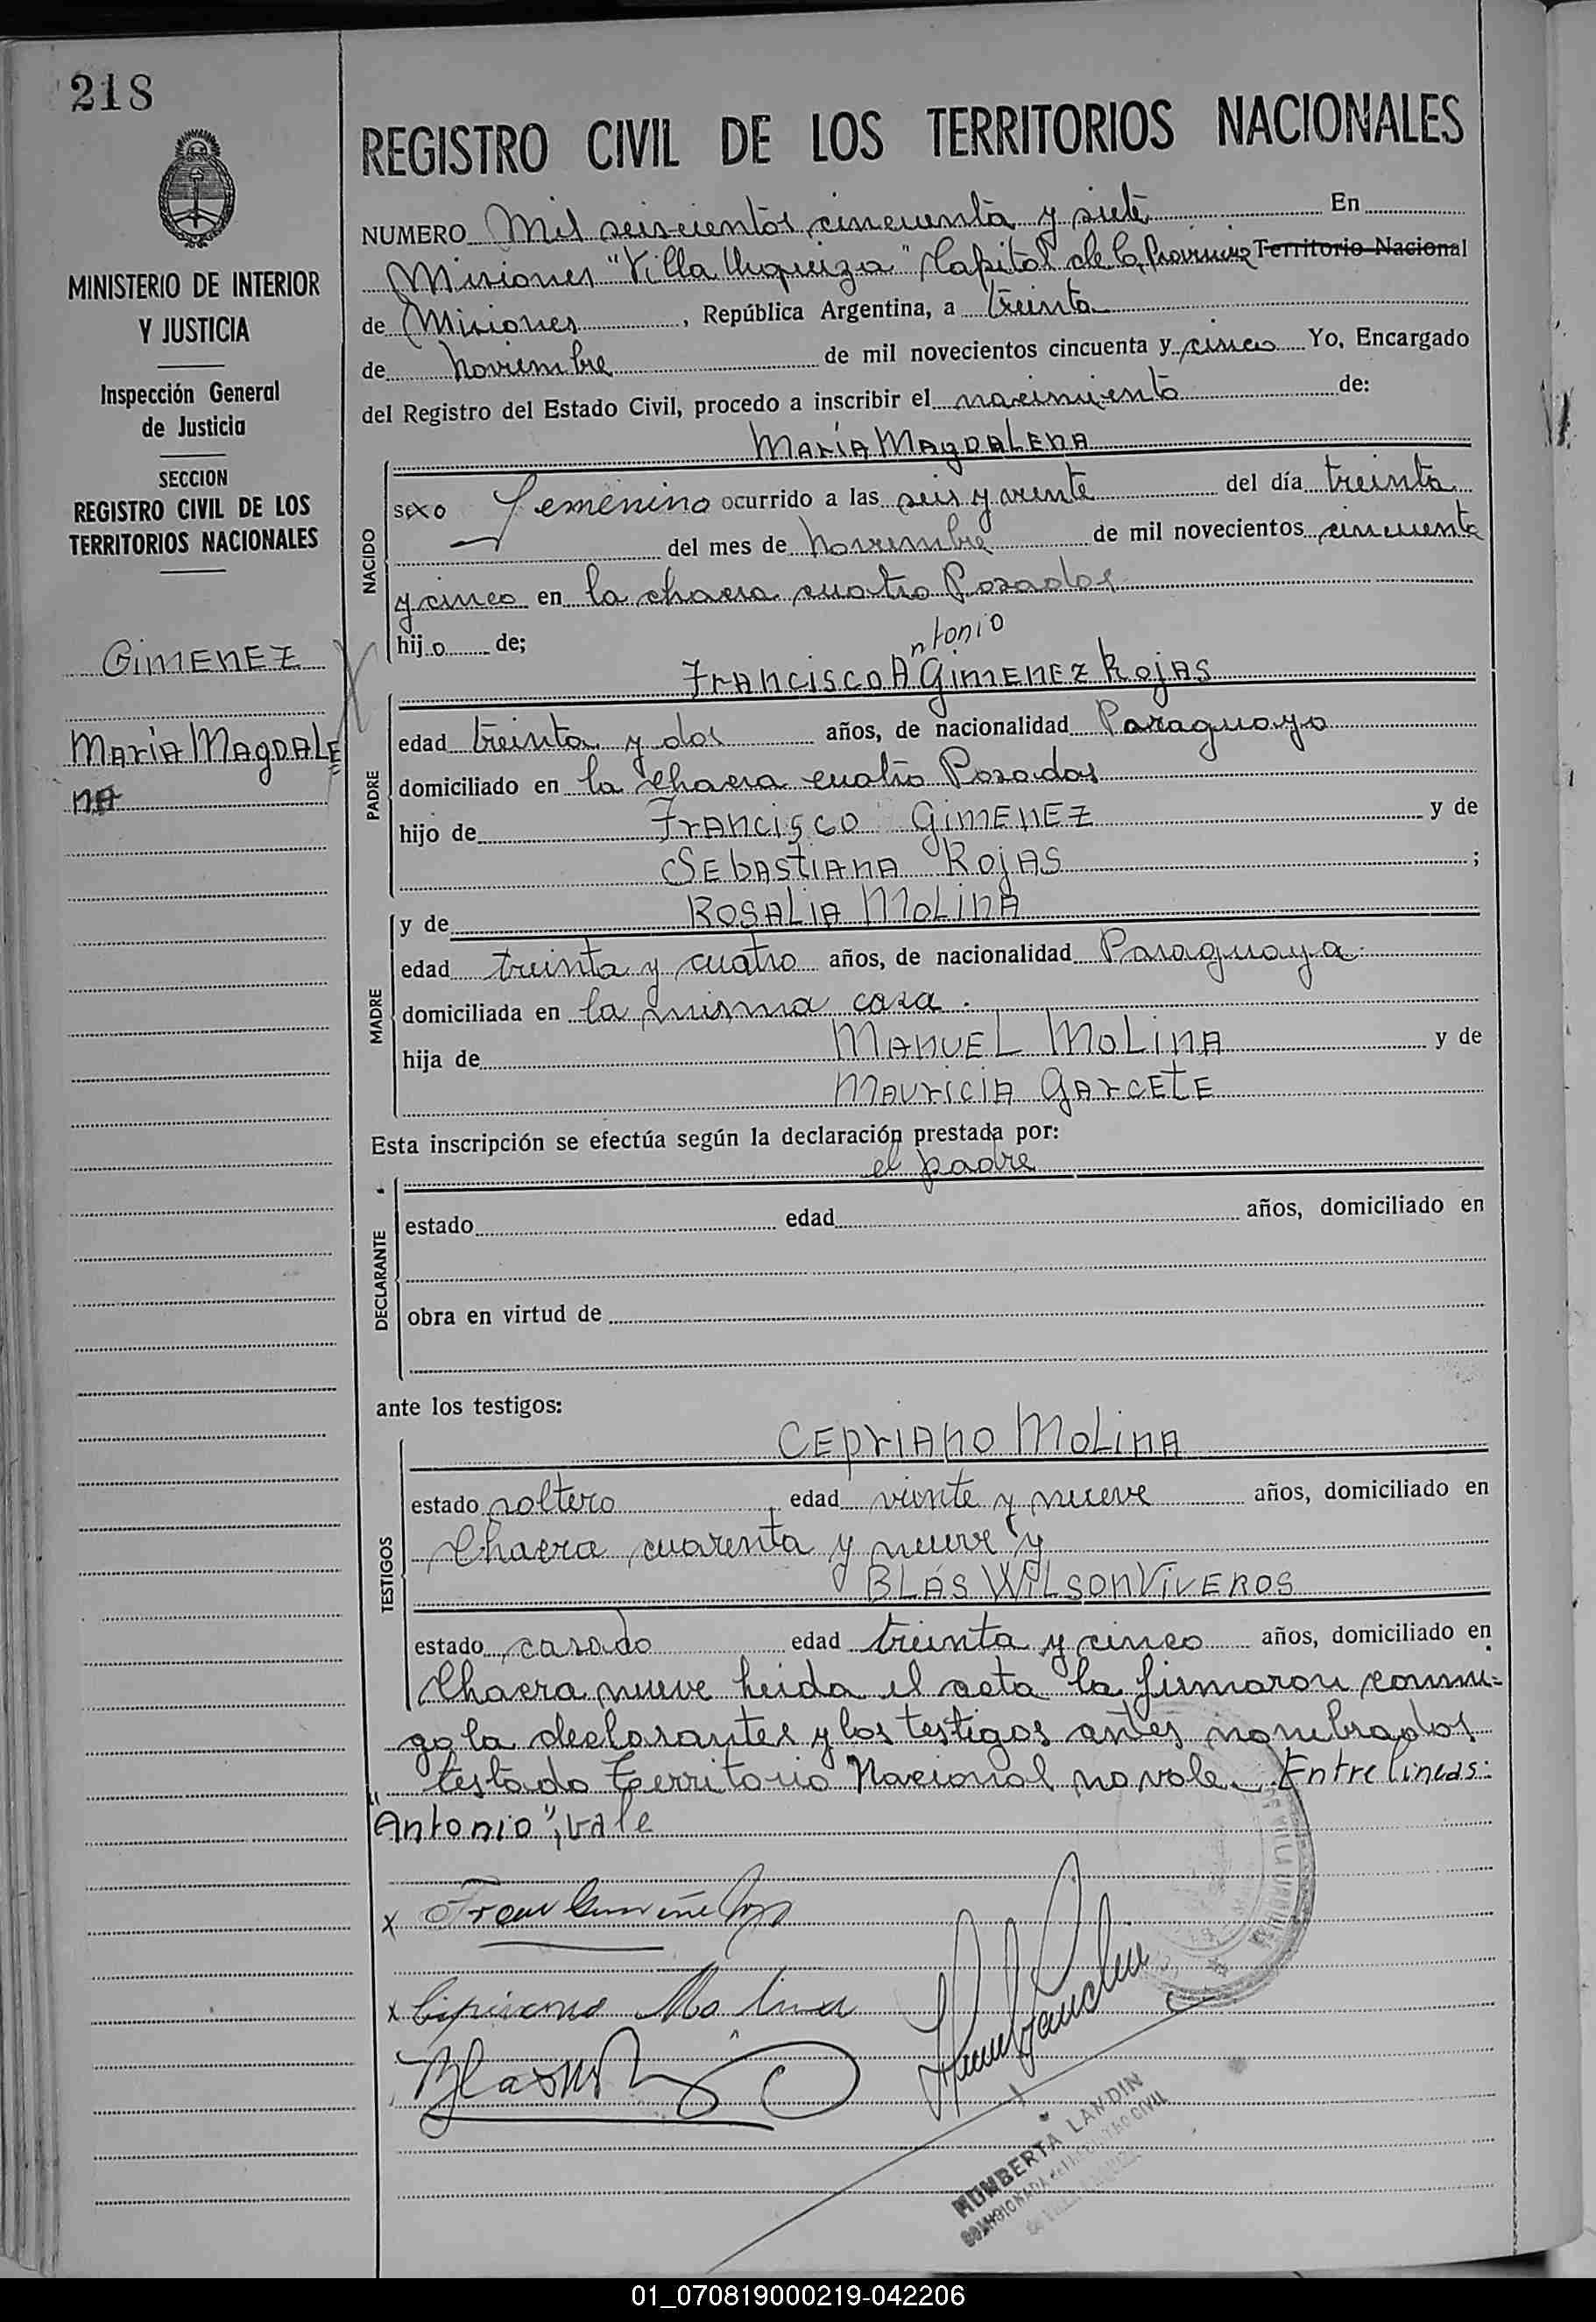 218
REGISTRO CIVIL DE LOS TERRITORIOS NACIONALES
MINISTERIO DE INTERIOR
Y JUSTICIA
Inspección General
de Justicia
SECCION
REGISTRO CIVIL DE LOS
TERRITORIOS NACIONALES
GiMENEZ
María MagDALE
NA
NUMERO Mil seiscientos cincuenta y siete En
Misiones "Villa Urquiza" Capital de la Provincia Territorio Nacional
de Misiones, República Argentina, a treinta
de Noviembre de mil novecientos cincuenta y cinco Yo, Encargado
del Registro del Estado Civil, procedo a inscribir el nacimiento de:
MARíA MAgDALENA
NACIDO
sexo Femenino ocurrido a las seis y veinte del día treinta
del mes de Noviembre de mil novecientos cincuenta
y cinco en la chacra cuatro Posadas
hijo de;
ntonio
FRANCISCO A GiMENEZ RojAS
PADRE
edad treinta y dos años, de nacionalidad Paraguayo
domiciliado en la chacra cuatro Posadas
hijo de FRANCISCO GiMENEZ y de
SEbAStiANA RojAS ;
MADRE
y de ROSALiA MOLiNA
edad treinta y cuatro años, de nacionalidad Paraguaya
domiciliada en la misma casa.
hija de MANUEL MOLiNA y de
MAURICIA GARCEtE
Esta inscripción se efectúa según la declaración prestada por:
el padre
DECLARANTE
estado edad años, domiciliado en
obra en virtud de
ante los testigos:
TESTIGOS
CEpRIANO MOLiNA
estado soltero edad veinte y nueve años, domiciliado en
Chacra cuarenta y nueve y
BLÁS WiLSON ViVEROS
estado casado edad treinta y cinco años, domiciliado en
Chacra nueve leida el acta la firmaron conmi-
go la declarantes y los testigos antes nombrados
testado Territorio Nacional no vale. Entre lineas:
"Antonio", vale
x Fran Gimenez
x Cipriano Molina
Blas
HUMBERTA LANDIN
01_070819000219-042206